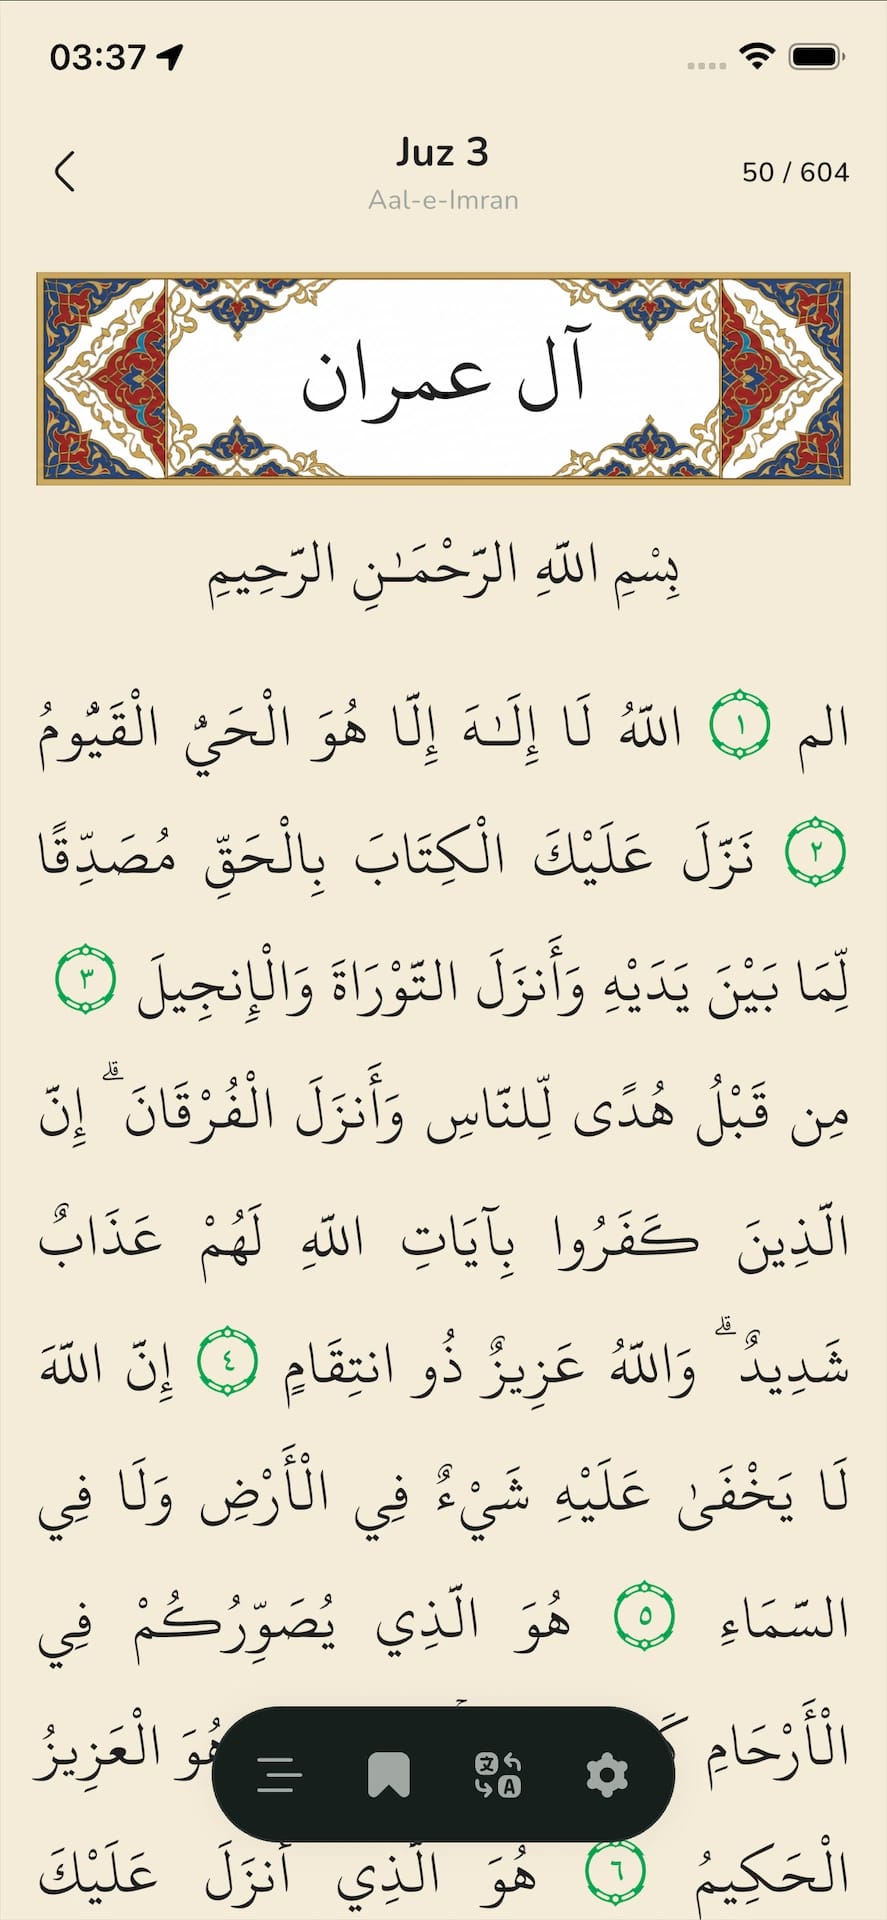 03:37
Juz 3
Aal-e-Imran
50 / 604
آل عمران
بِسْمِ اللَّهِ الرَّحْمَـٰنِ الرَّحِيمِ
الم ١ اللَّهُ لَا إِلَـٰهَ إِلَّا هُوَ الْحَيُّ الْقَيُّومُ
٢ نَزَّلَ عَلَيْكَ الْكِتَابَ بِالْحَقِّ مُصَدِّقًا
لِّمَا بَيْنَ يَدَيْهِ وَأَنزَلَ التَّوْرَاةَ وَالْإِنجِيلَ ٣
مِن قَبْلُ هُدًى لِّلنَّاسِ وَأَنزَلَ الْفُرْقَانَ ۗ إِنَّ
الَّذِينَ كَفَرُوا بِآيَاتِ اللَّهِ لَهُمْ عَذَابٌ
شَدِيدٌ ۗ وَاللَّهُ عَزِيزٌ ذُو انتِقَامٍ ٤ إِنَّ اللَّهَ
لَا يَخْفَىٰ عَلَيْهِ شَيْءٌ فِي الْأَرْضِ وَلَا فِي
السَّمَاءِ ٥ هُوَ الَّذِي يُصَوِّرُكُمْ فِي
الْأَرْحَامِ هُوَ الْعَزِيزُ
الْحَكِيمُ ٦ هُوَ الَّذِي أَنزَلَ عَلَيْكَ